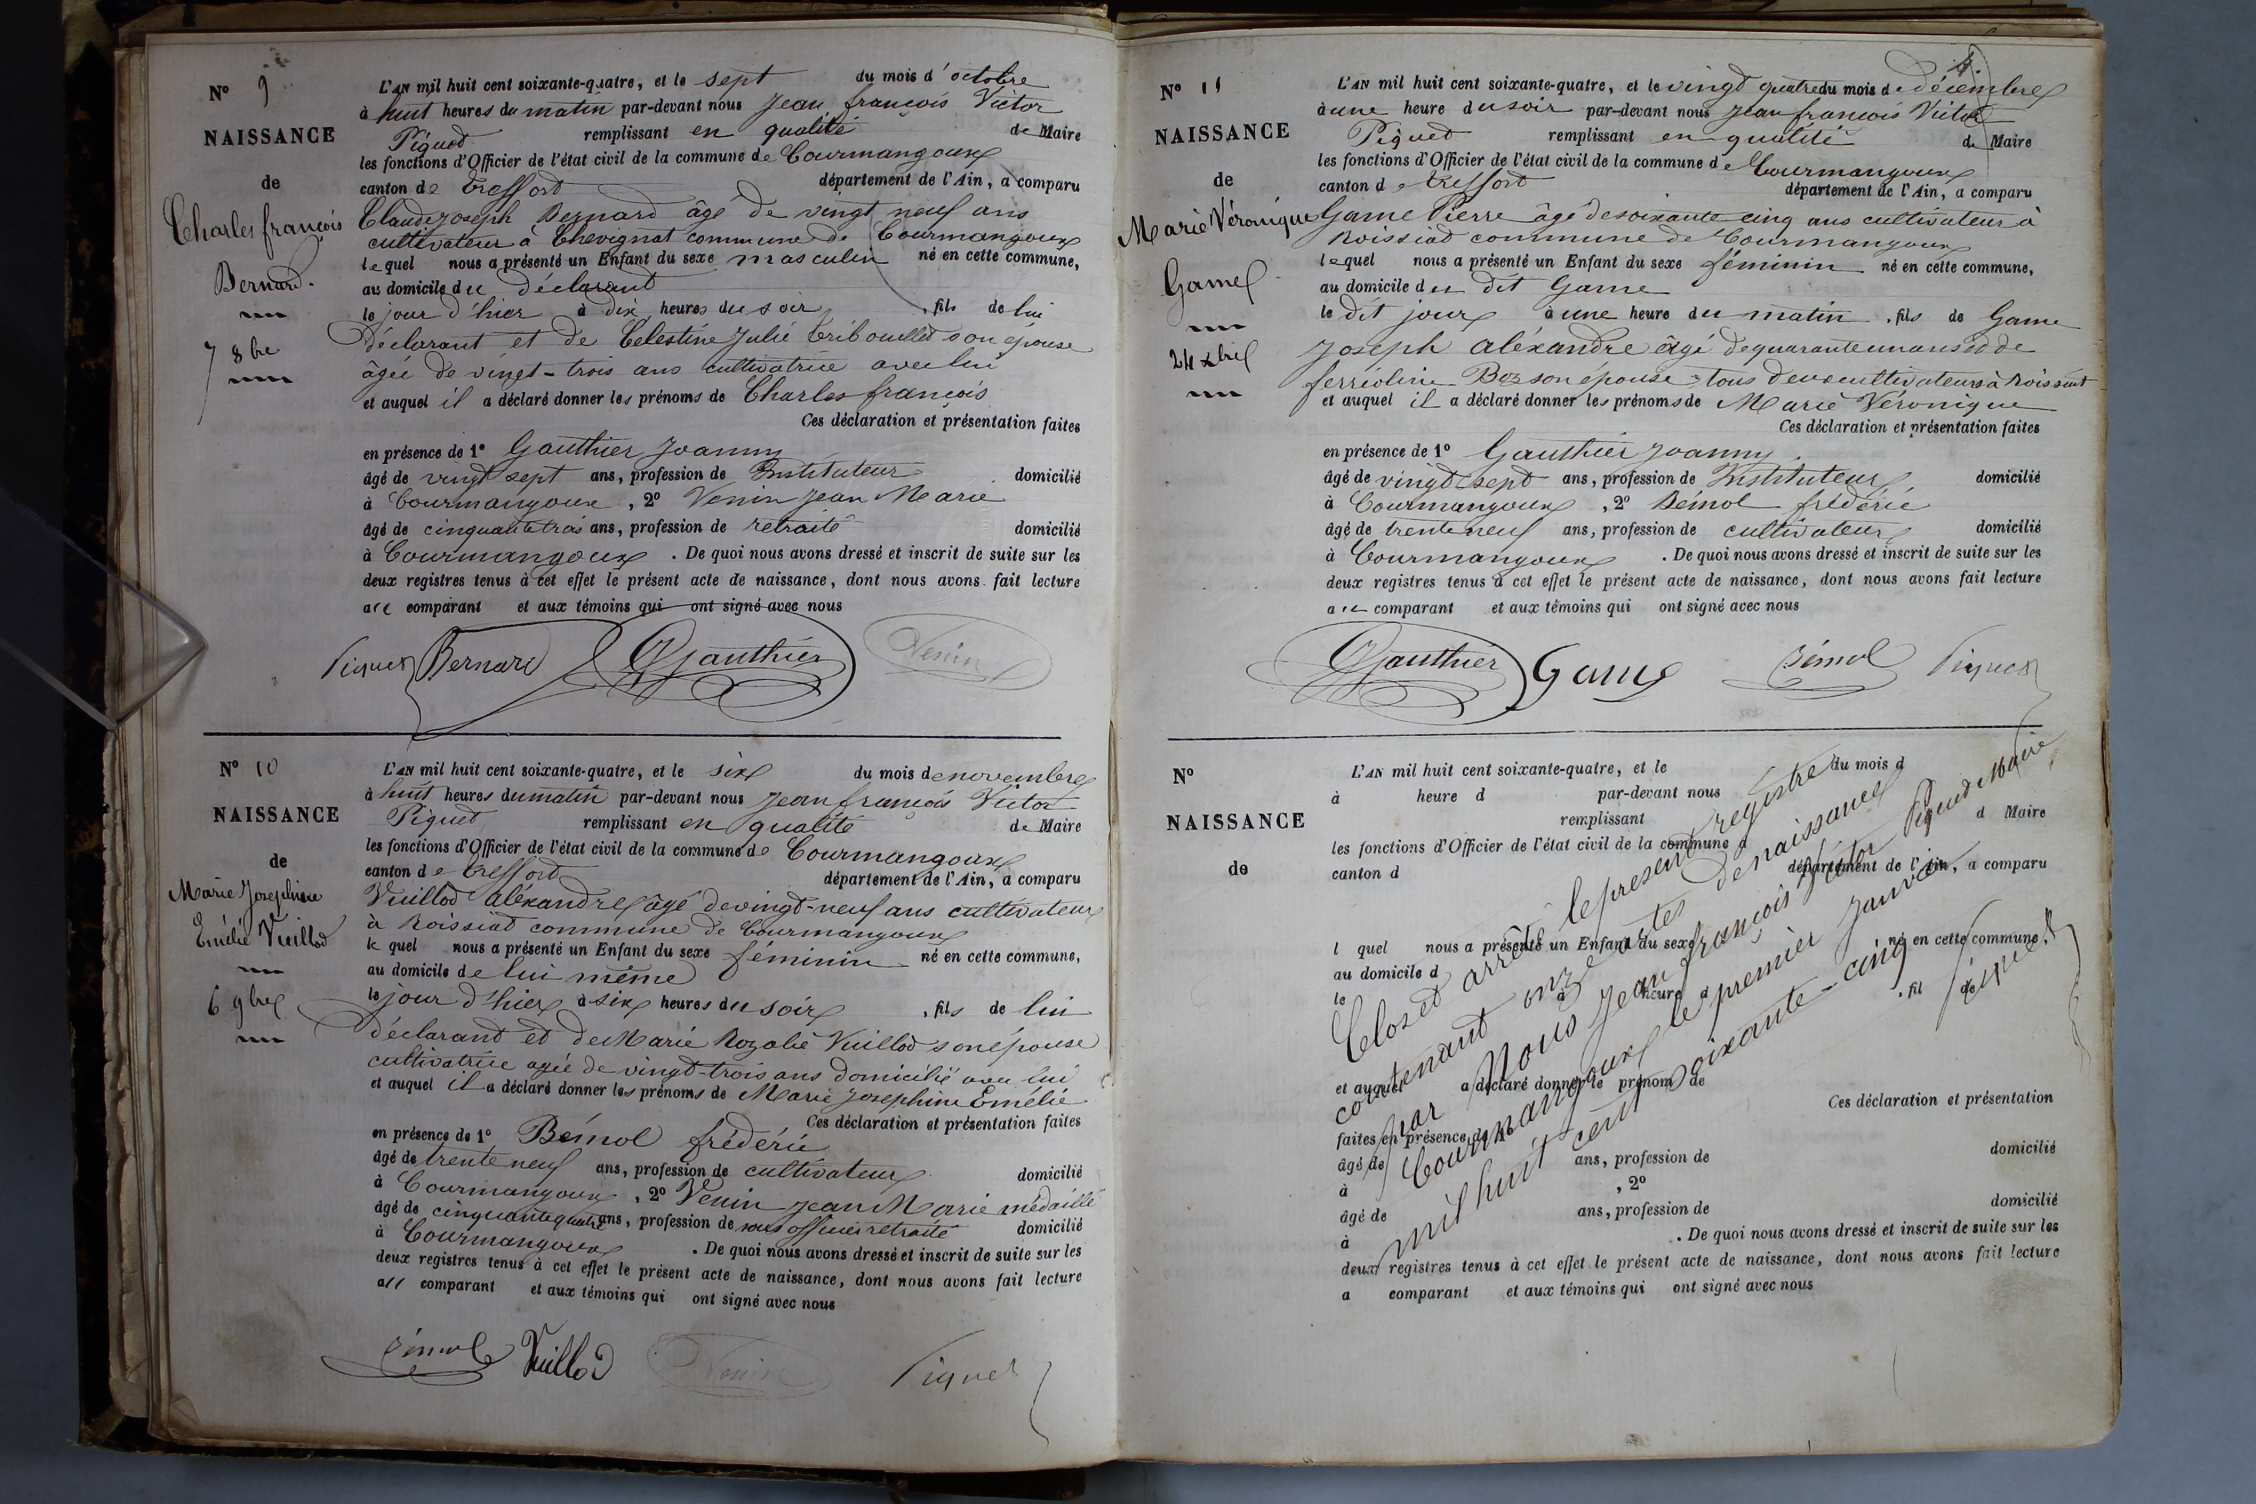 N° 9
NAISSANCE
de
Charles françois
Bernard.
7 8bre
L'AN mil huit cent soixante-quatre, et le sept du mois d'octobre
à huit heures du matin par-devant nous Jean françois Victor
Piquet remplissant en qualité de Maire
les fonctions d'Officier de l'état civil de la commune de Courmangoux
canton de Treffort département de l'Ain, a comparu
Claude joseph Bernard âgé de vingt neuf ans
cultivateur à Chevignat commune de Courmangoux
lequel nous a présenté un Enfant du sexe masculin né en cette commune,
au domicile du déclarant
le jour d'hier à dix heures du soir , fils de lui
déclarant et de Celestine Julie Tribouillet son épouse
âgée de vingt-trois ans cultivatrice avec lui
et auquel il a déclaré donner les prénoms de Charles françois
Ces déclaration et présentation faites
en présence de 1° Gauthier Joanny
âgé de vingt sept ans, profession de Instituteur domicilié
à Courmangoux , 2° Venin Jean Marie
âgé de cinquante trois ans, profession de retraité domicilié
à Courmangoux . De quoi nous avons dressé et inscrit de suite sur les
deux registres tenus à cet effet le présent acte de naissance, dont nous avons fait lecture
au comparant et aux témoins qui ont signé avec nous
Piquet Bernard Gauthier Venin
N° 10
NAISSANCE
de
Marie Josephine
Emélie Vuillod
6 9bre
L'AN mil huit cent soixante-quatre, et le six du mois de novembre
à huit heures du matin par-devant nous Jean françois Victor
Piquet remplissant en qualité de Maire
les fonctions d'Officier de l'état civil de la commune de Courmangoux
canton de Treffort département de l'Ain, a comparu
Vuillod aléxandre âgé de vingt-neuf ans cultivateur
à Roissiat commune de Courmangoux
lequel nous a présenté un Enfant du sexe féminin né en cette commune,
au domicile de lui même
le jour d'hier à six heures du soir , fils de lui
déclarant et de Marie Rozalie Vuillod son épouse
cultivatrice agée de vingt-trois ans domicilié avec lui
et auquel il a déclaré donner les prénoms de Marie Josephine Emélie
Ces déclaration et présentation faites
en présence de 1° Bémol frédéric
âgé de trente neuf ans, profession de cultivateur domicilié
à Courmangoux , 2° Venin Jean Marie médaillé
âgé de cinquante quatre ans, profession de sous officier retraité domicilié
à Courmangoux . De quoi nous avons dressé et inscrit de suite sur les
deux registres tenus à cet effet le présent acte de naissance, dont nous avons fait lecture
au comparant et aux témoins qui ont signé avec nous
Bémol Vuillod Venin Piquet
N° 11
NAISSANCE
de
Marie Véronique
Game
24 xbre
L'AN mil huit cent soixante-quatre, et le vingt quatre du mois de décembre
à une heure du soir par-devant nous Jean françois Victor
Piquet remplissant en qualité de Maire
les fonctions d'Officier de l'état civil de la commune de Courmangoux
canton de treffort département de l'Ain, a comparu
Game Pierre âgé de soixante cinq ans cultivateur à
Roissiat commune de Courmangoux
lequel nous a présenté un Enfant du sexe féminin né en cette commune,
au domicile du dit Game
le dit jour à une heure du matin , fils de Game
Joseph aléxandre âgé de quarante un ans et de
ferréoline Boz son épouse tous deux cultivateurs à Roissiat
et auquel il a déclaré donner les prénoms de Marie Véronique
Ces déclaration et présentation faites
en présence de 1° Gauthier Joanny
âgé de vingt sept ans, profession de Instituteur domicilié
à Courmangoux , 2° Bémol frédéric
âgé de trente neuf ans, profession de cultivateur domicilié
à Courmangoux . De quoi nous avons dressé et inscrit de suite sur les
deux registres tenus à cet effet le présent acte de naissance, dont nous avons fait lecture
au comparant et aux témoins qui ont signé avec nous
Gauthier Game Bémol Piquet
N°
NAISSANCE
de
L'AN mil huit cent soixante-quatre, et le du mois d
à heure d par-devant nous
remplissant d Maire
les fonctions d'Officier de l'état civil de la commune d
canton d département de l'Ain, a comparu
l quel nous a présenté un Enfant du sexe né en cette commune,
au domicile d
le à heure d , fil de
et auquel a déclaré donner le prénom de
Ces déclaration et présentation
faites en présence de 1°
âgé de ans, profession de domicilié
à , 2°
âgé de ans, profession de domicilié
à . De quoi nous avons dressé et inscrit de suite sur les
deux registres tenus à cet effet le présent acte de naissance, dont nous avons fait lecture
a comparant et aux témoins qui ont signé avec nous
Clos et arrêté le present registre
contenant onze actes de naissance
par Nous Jean françois Victor Piquet Maire
Courmangoux le premier Janvier
mil huit cent soixante-cinq
Piquet